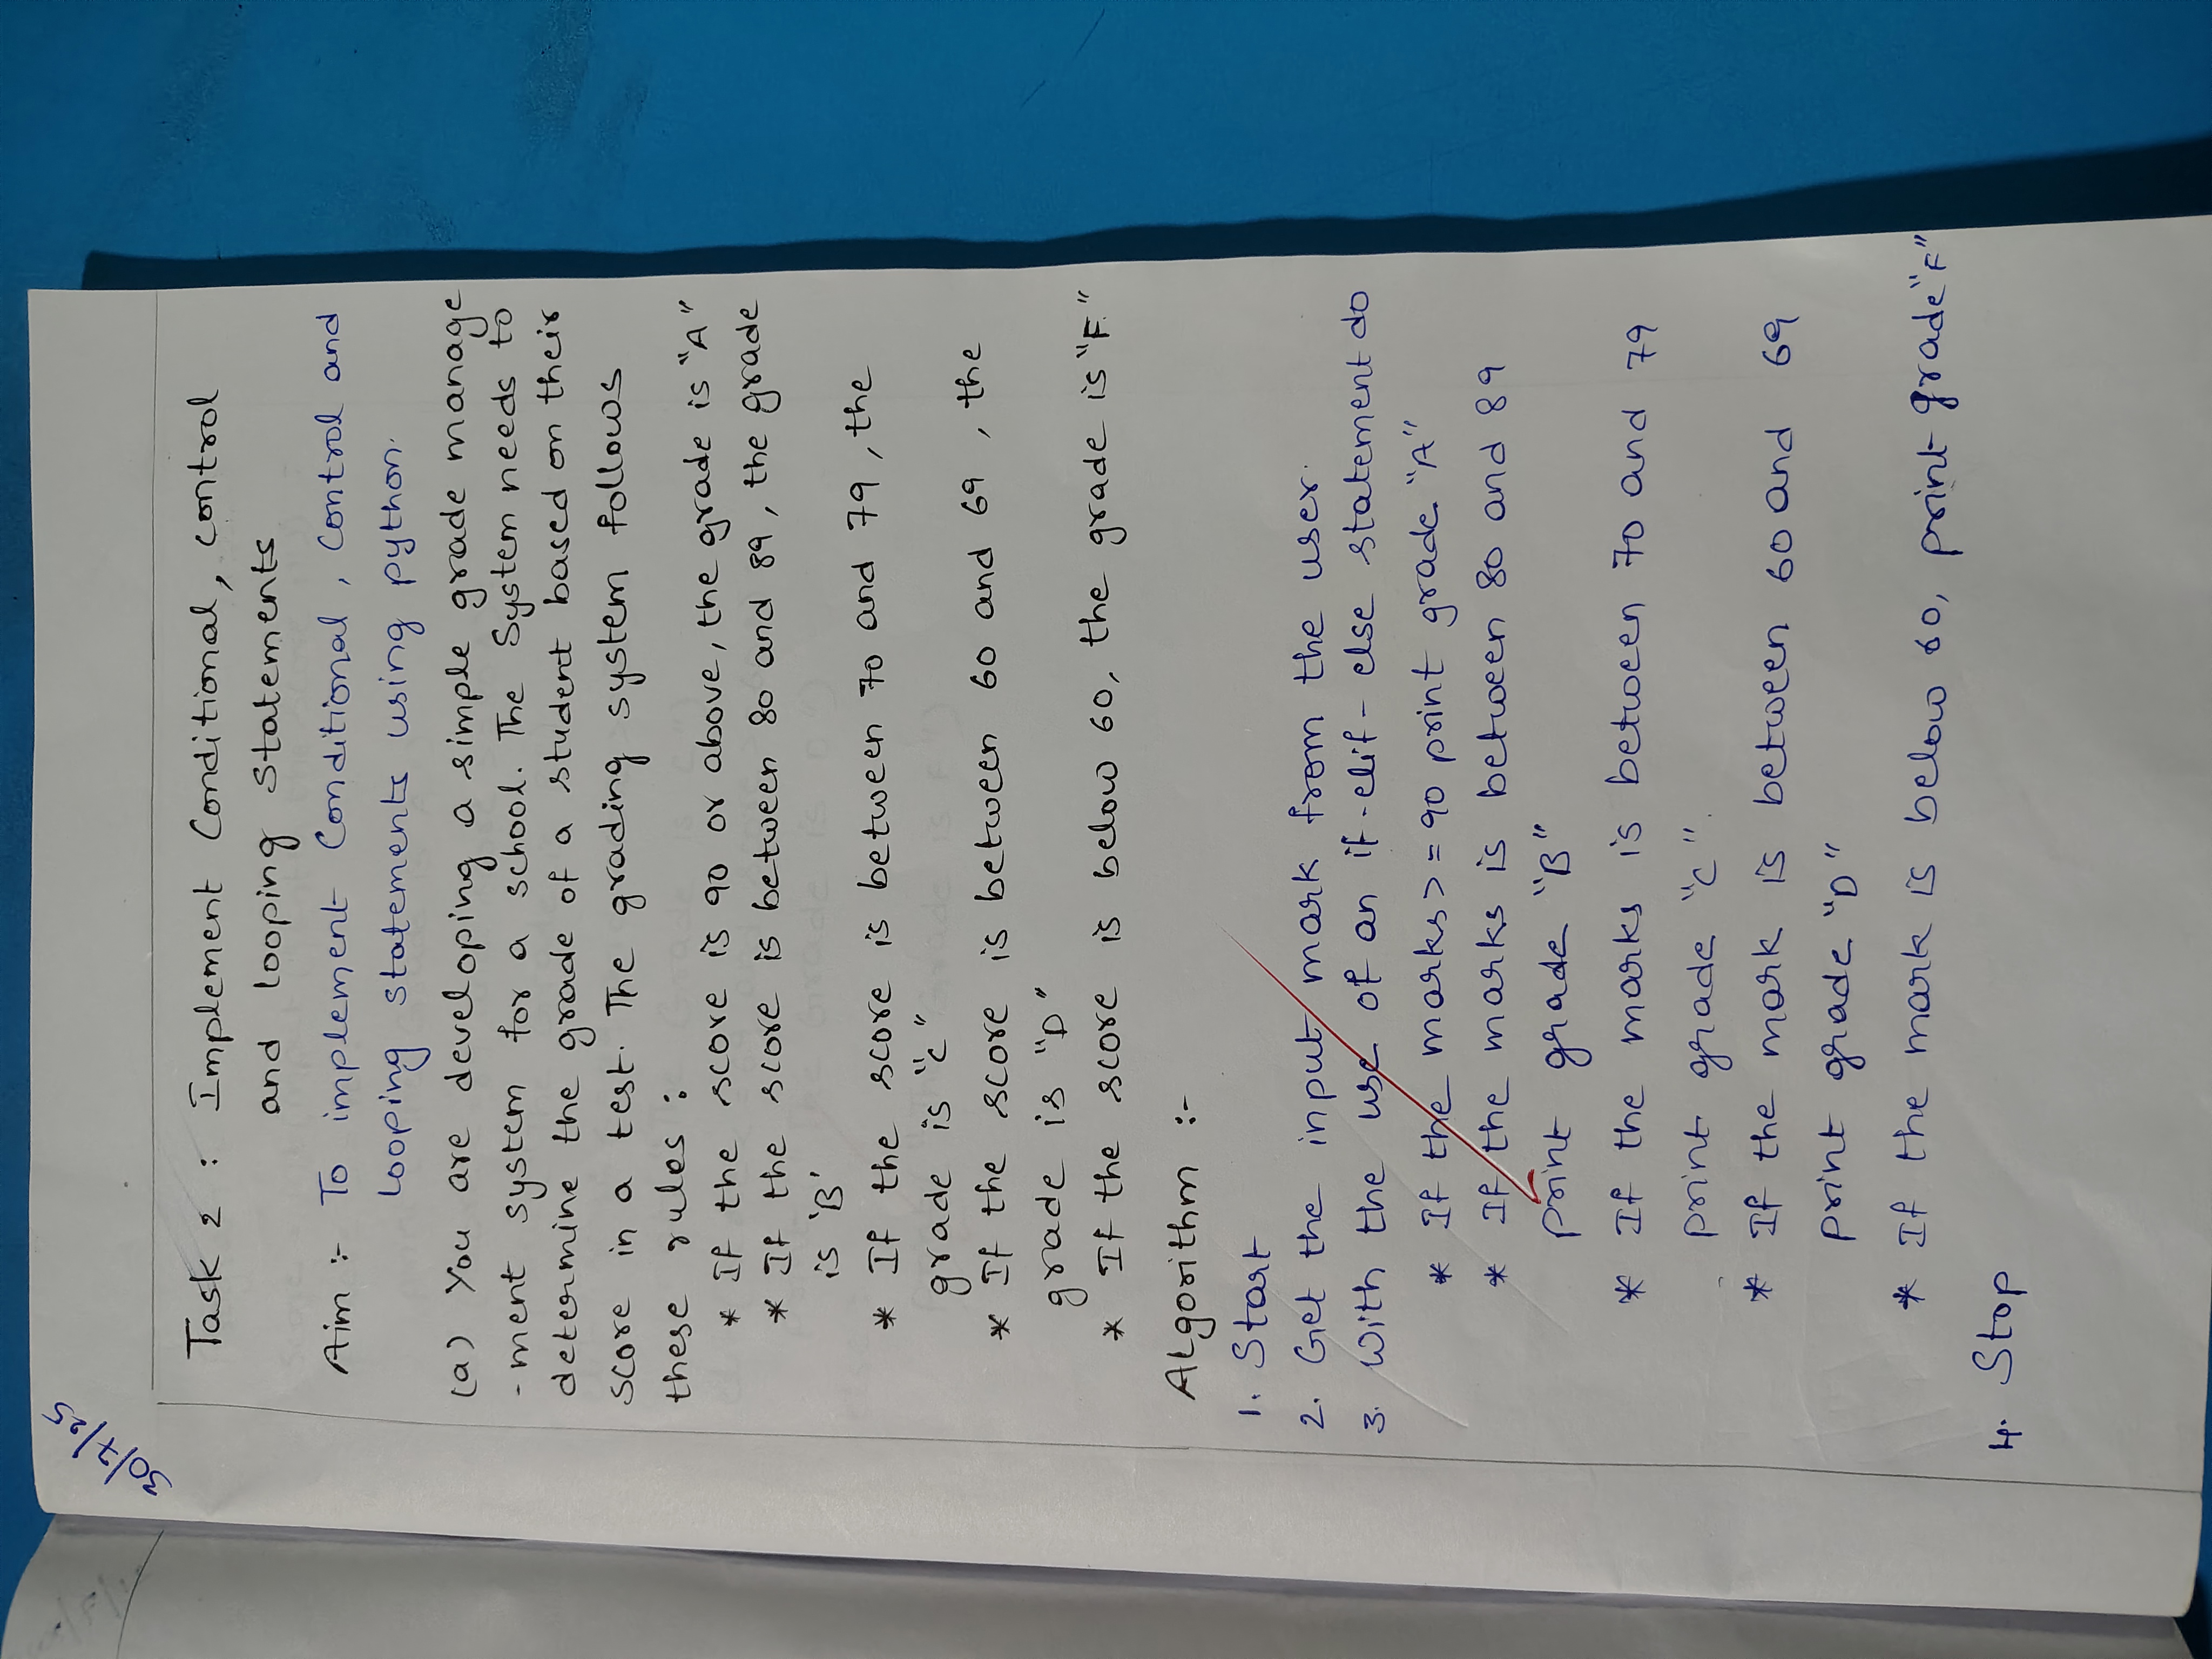 30/7/25
Task 2 : Implement Conditional, control
and looping Statements
Aim :- To implement Conditional, Control and
Looping statements using python.
(a) You are developing a simple grade manage
-ment system for a school. The System needs to
determine the grade of a student based on their
score in a test. The grading system follows
these rules :
* If the score is 90 or above, the grade is "A"
* If the score is between 80 and 89, the grade
is 'B'
* If the score is between 70 and 79, the
grade is "C"
* If the score is between 60 and 69, the
grade is "D"
* If the score is below 60, the grade is "F."
Algorithm :-
1. Start
2. Get the input mark from the user.
3. With the use of an if-elif-else statement do
* If the marks >= 90 print grade "A"
* If the marks is between 80 and 89
print grade "B"
* If the marks is between 70 and 79
print grade "C".
* If the mark is between 60 and 69
print grade "D"
* If the mark is below 60, print grade "F"
4. Stop